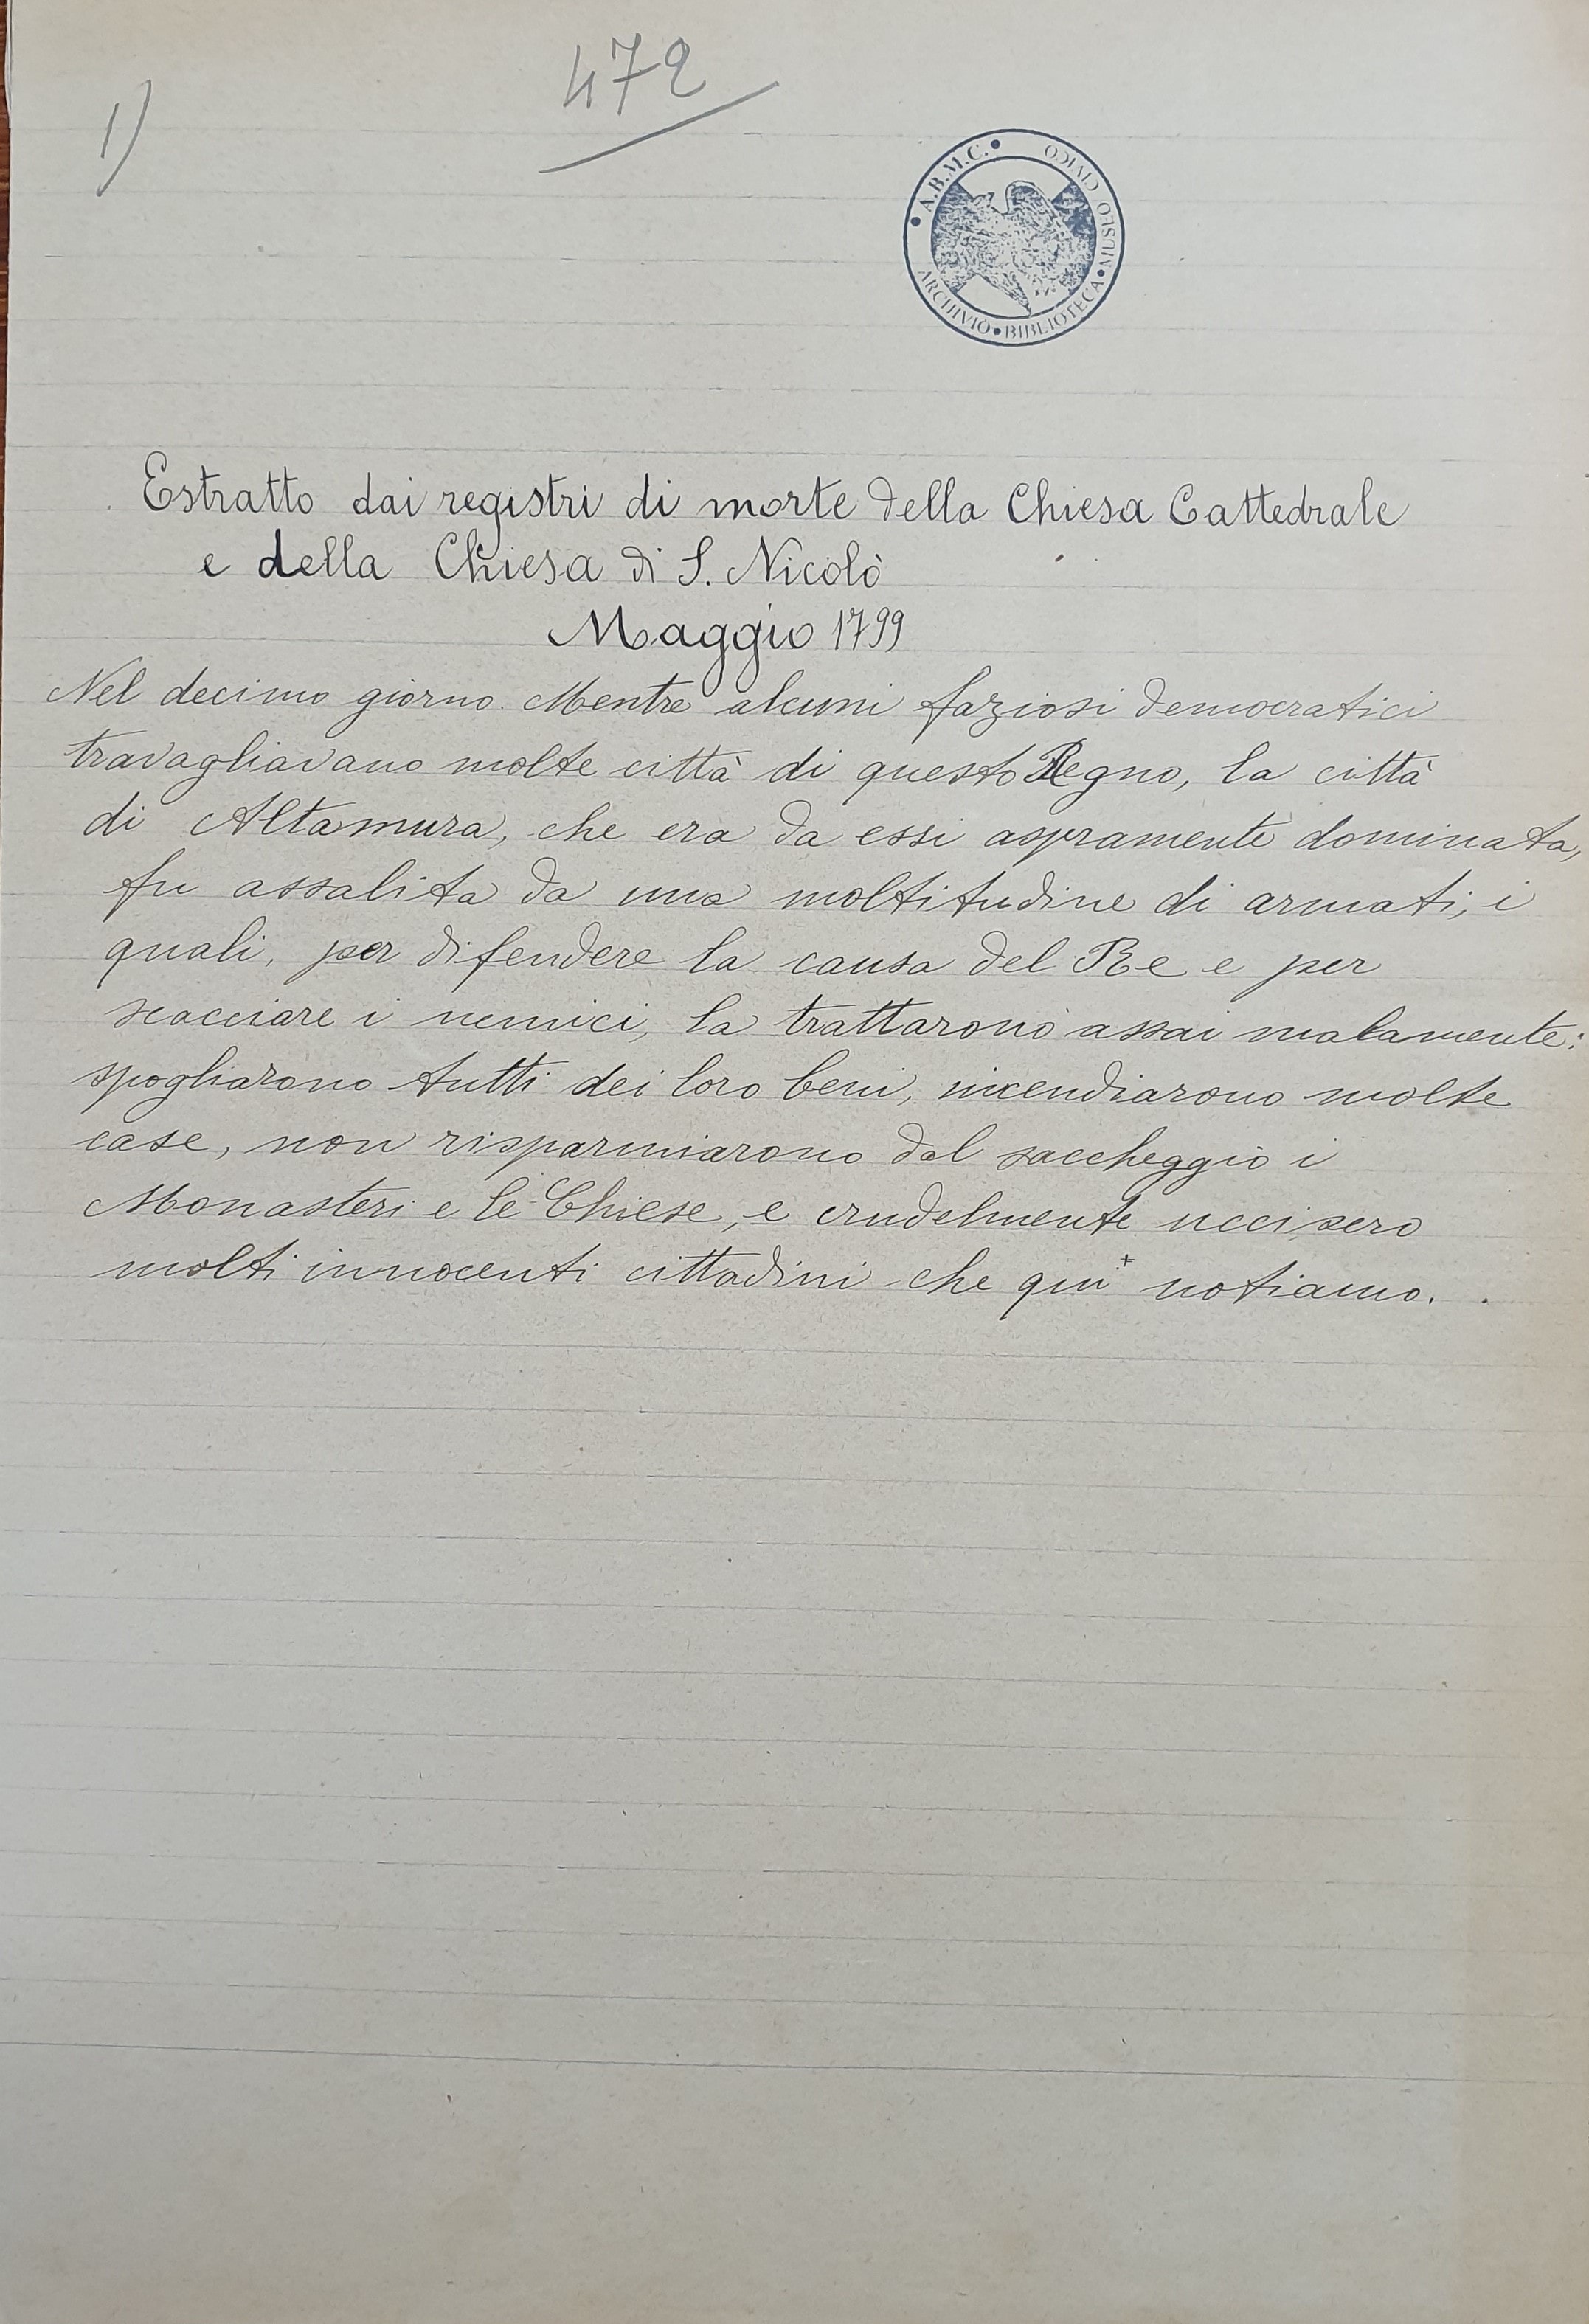 472
1)
• A.B.M.C. • MUSEO CIVICO • BIBLIOTECA • ARCHIVIO
Estratto dai registri di morte della Chiesa Cattedrale
e della Chiesa di S. Nicolò
Maggio 1799
Nel decimo giorno. Mentre alcuni faziosi democratici
travagliavano molte città di questo Regno, la città
di Altamura, che era da essi aspramente dominata,
fu assalita da una moltitudine di armati, i
quali, per difendere la causa del Re e per
scacciare i nemici, la trattarono assai malamente:
spogliarono tutti dei loro beni, incendiarono molte
case, non risparmiarono dal saccheggio i
Monasteri e le Chiese, e crudelmente uccisero
molti innocenti cittadini che qui notiamo.